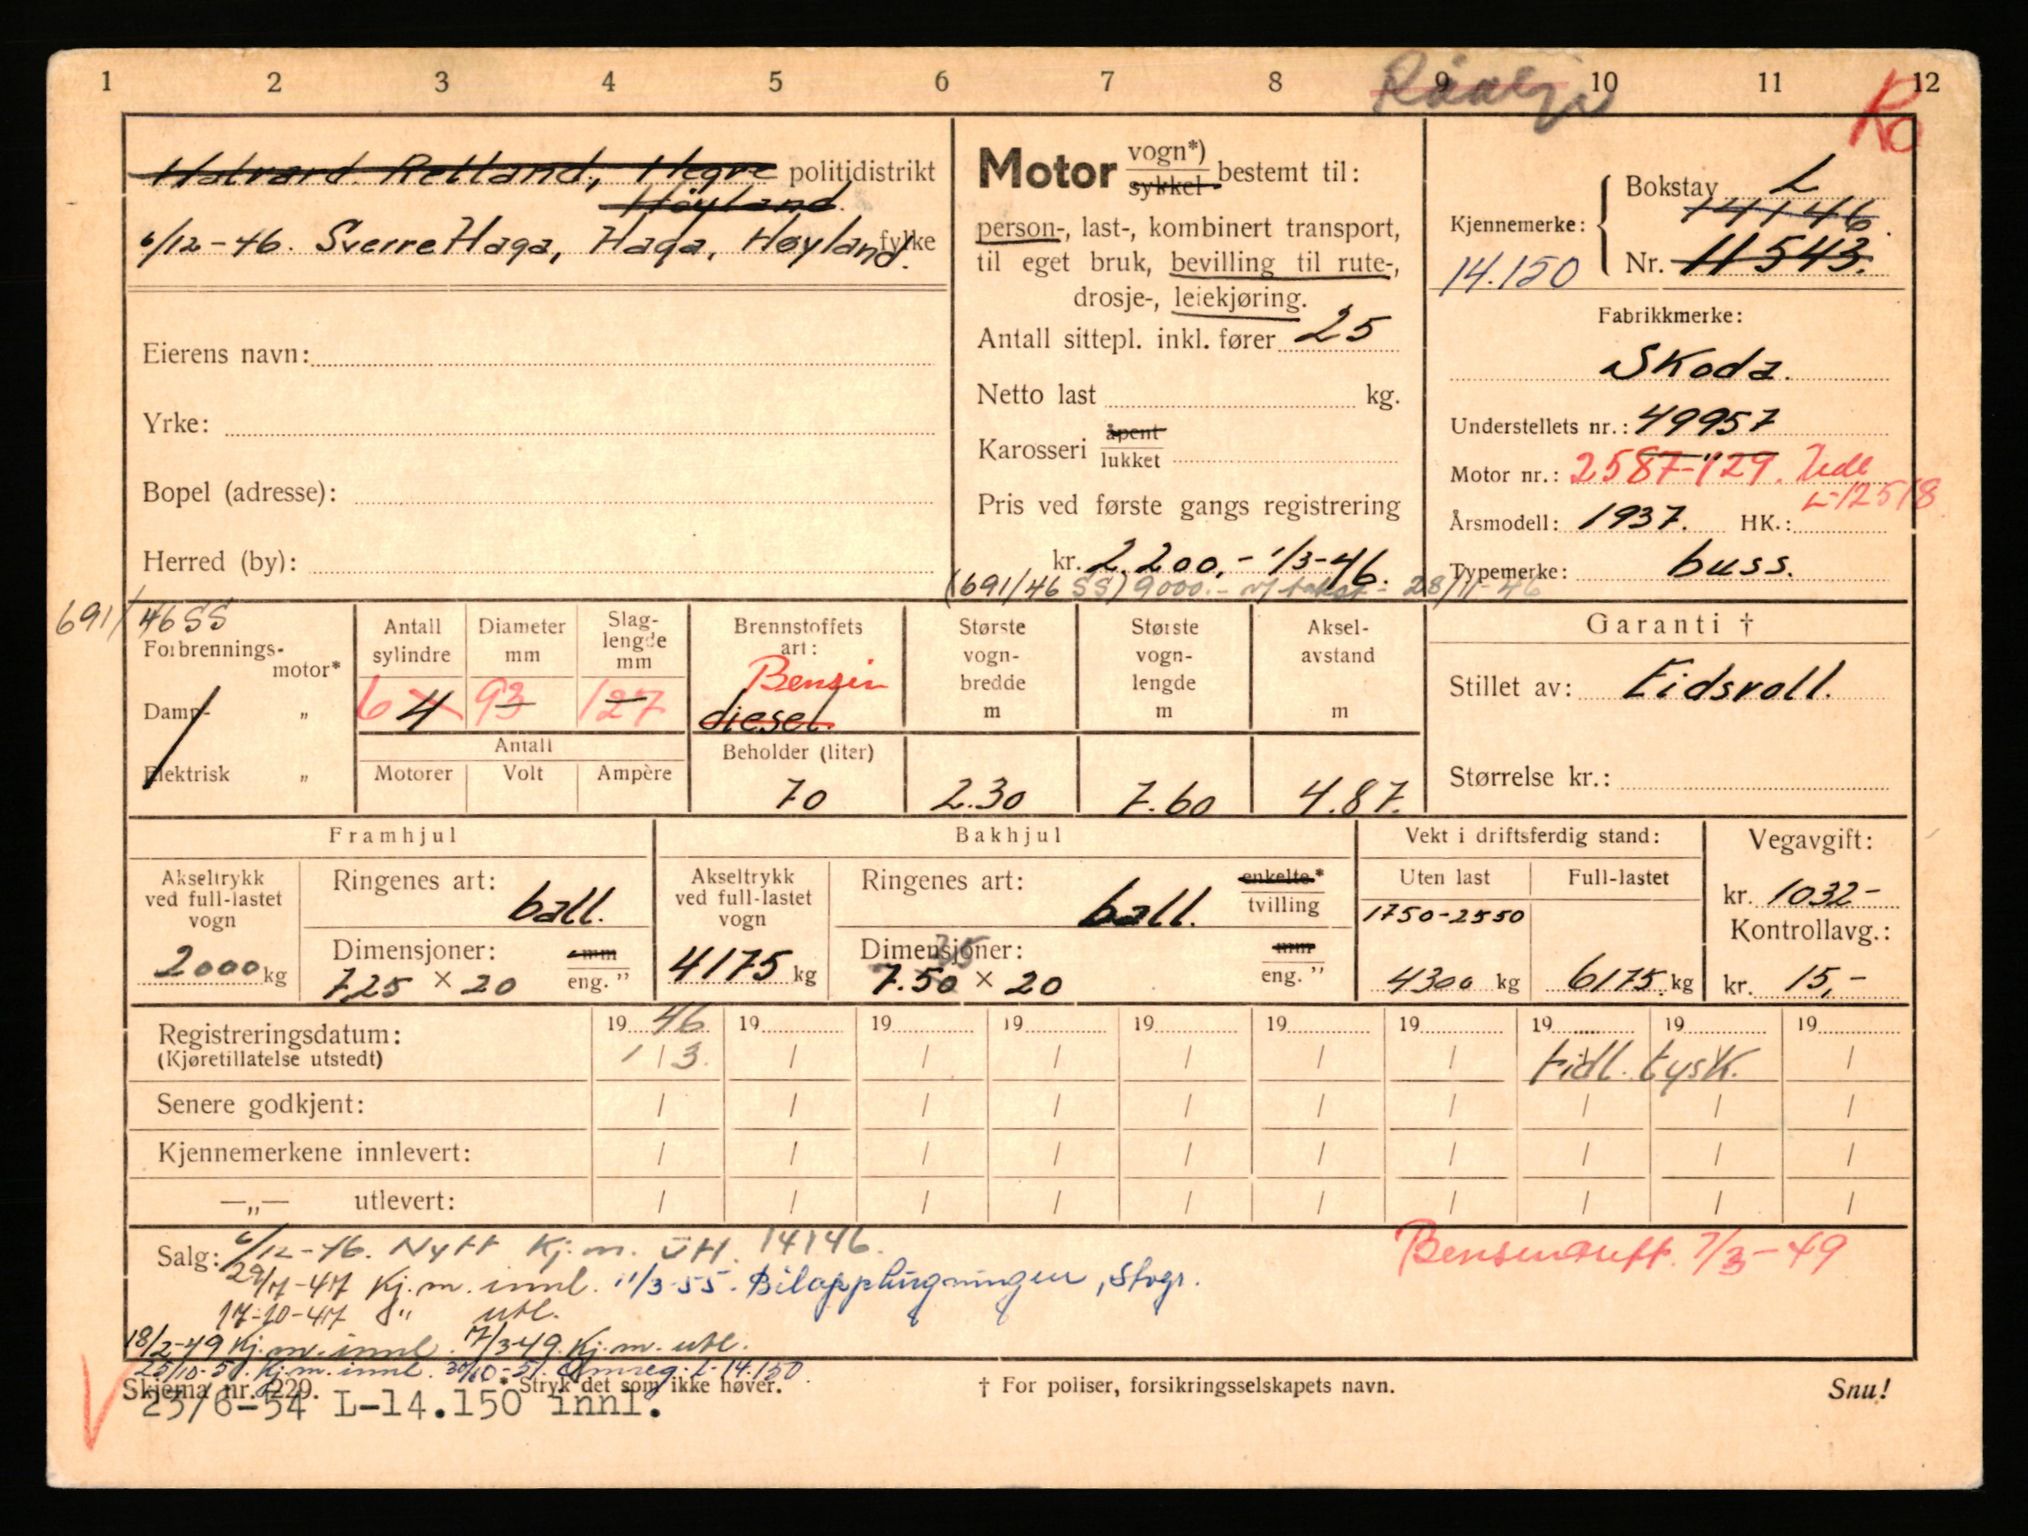 1 2 3 4 5 6 7 8 9 10 11 12
Ro
Halvard Retland, Hegre politidistrikt
Høyland.
6/12-46. Sverre Haga, Haga, Høyland. fylke
Eierens navn:
Yrke:
Bopel (adresse):
Herred (by):
Motor vogn*) sykkel bestemt til:
person-, last-, kombinert transport,
til eget bruk, bevilling til rute-,
drosje-, leiekjøring.
Antall sittepl. inkl. fører 25
Netto last kg.
Karosseri åpent lukket
Pris ved første gangs registrering
kr. 2.200,- 1/3-46.
(691/46 SS) 9000.- v/ takst- 28/11-46
Bokstav L
14146.
Kjennemerke: Nr. 11543.
14.150
Fabrikkmerke:
Skoda.
Understellets nr.: 49957
Motor nr.: 2587-129.
L-12518
Årsmodell: 1937. HK.:
Typemerke: buss.
691/46 SS
Forbrennings-
motor*
Damp- "
Elektrisk "
Antall sylindre
6 4
Diameter mm
93
Slag-lengde mm
127
Antall
Motorer Volt Ampère
Brennstoffets art:
Bensin
diesel.
Beholder (liter)
70
Største vogn-bredde m
2.30
Største vogn-lengde m
7.60
Aksel-avstand m
4.87.
Garanti †
Stillet av: Eidsvoll.
Størrelse kr.:
Framhjul
Akseltrykk ved full-lastet vogn
2000 kg
Ringenes art: ball.
Dimensjoner: mm
725 × 20 eng. "
Bakhjul
Akseltrykk ved full-lastet vogn
4175 kg
Ringenes art: ball. enkelte* tvilling
Dimensjoner: mm
35
7.50 × 20 eng. "
Vekt i driftsferdig stand:
Uten last Full-lastet
1750-2550
4300 kg 6175 kg
Vegavgift:
kr. 1032-
Kontrollavg.:
kr. 15,-
Registreringsdatum: 19 46 19 19 19 19 19 19 19 19 19
(Kjøretillatelse utstedt) 1/3. / / / / / / tidl. tysk. /
Senere godkjent: / / / / / / / / / /
Kjennemerkene innlevert: / / / / / / / / / /
—„— utlevert: / / / / / / / / / /
Salg: 6/12-46. Nytt kj.m. utl. 14146. Bensindrift. 7/3-49
29/7-47 kj.m. innl. 11/3-55. Bilopphugningen, Stvgr.
17-10-47 " utl.
18/2-49 kj.m. innl. 7/3-49. kj.m. utl.
25/10-51. kj.m. innl. 30/10-51. Omreg. L-14.150.
Skjema nr. 1229. * Stryk det som ikke høver. † For poliser, forsikringsselskapets navn. Snu!
23/6-54 L-14.150 innl.